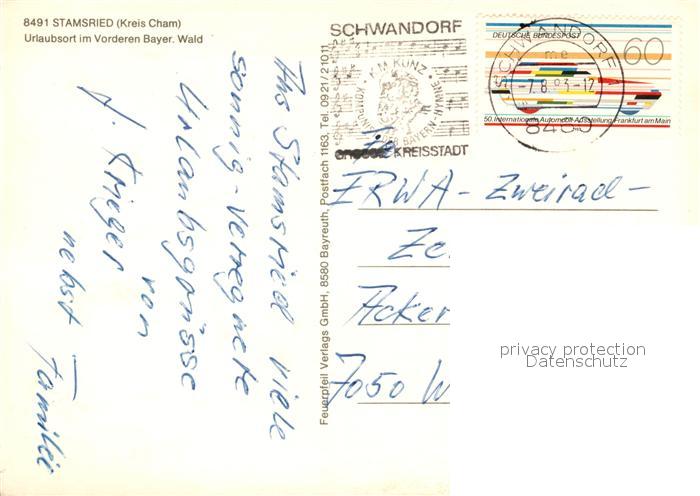 8491 STAMSRIED (Kreis Cham)
Urlaubsort im Vorderen Bayer. Wald
Aus Stamsried viele
sonnig-verregnete
Urlaubsgrüsse
von
J. Krieger
nebst Familie
Feuerpfeil Verlags GmbH, 8580 Bayreuth, Postfach 1163, Tel. 0921/21011
SCHWANDORF
F.M. KUNZ
KREISSTADT
DEUTSCHE BUNDESPOST
60
50. Internationale Automobil-Ausstellung Frankfurt am Main
SCHWANDORF
me
-7.8.83-12
ERWA-Zweirad-
Ze
Acker
7050 W
privacy protection
Datenschutz